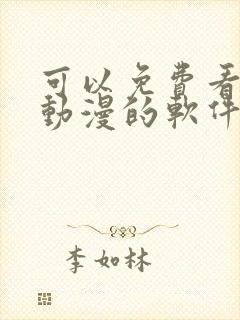 可以免費看
動漫的軟件
李如林